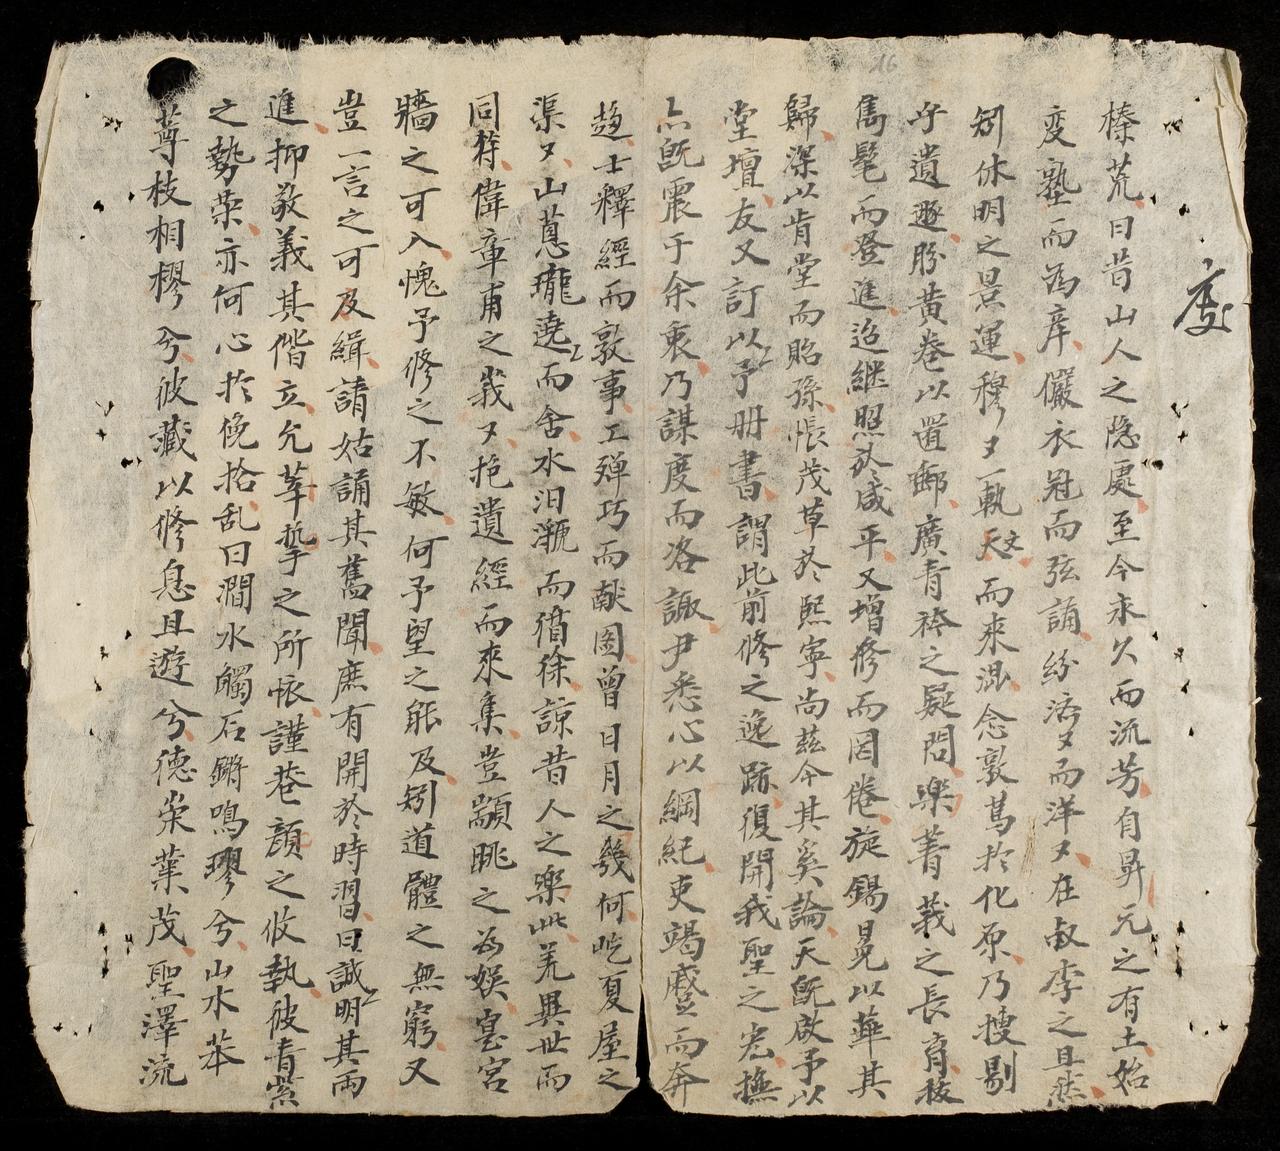 榛荒曰昔山人之隐處至今永久而流芳自昇元之有土始
变塾而為庠儼衣冠而弦誦紛济〻而洋〻在叔季之且然
矧休明之景運穆〻一軌天文而來混念敦篤扵化原乃搜剔
乎遺遯肦黃卷以置郵廣青衿之疑問樂菁莪之長育拔
雋髦而登進迨継照於咸平又增修而罔倦旋錫冕以華其
歸深以肯堂而貽孫悵茂草於熙寧尚兹今其奚論天既啟予以
堂壇友又訂以予冊書謂此前修之逸跡復開我聖之宏撫
亦既震于余衷乃謀度而咨諏尹悉心以綱紀吏竭蹙而奔
趨士釋經而敦事工殫巧而献图曾日月之幾何屹夏屋之
渠〻山蔥瓏遶而舍水汨㶁而循徐諒昔人之樂此羌異世而
同符偉章甫之峩〻抱遺經而來集豈顓眺之為娛寔宮
牆之可入愧予修之不敏何予望之能及矧道體之無窮又
豈一言之可及緝請姑誦其舊聞庶有開於時習曰誠明其兩
進抑敬義其偕立允莘摯之所懷謹巷顏之攸執彼青紫
之勢荣亦何心扵俛拾乱曰澗水觸石鏘鳴璆兮山木苯
䔿枝相樛兮彼藏以修息且遊兮德崇業茂聖澤流